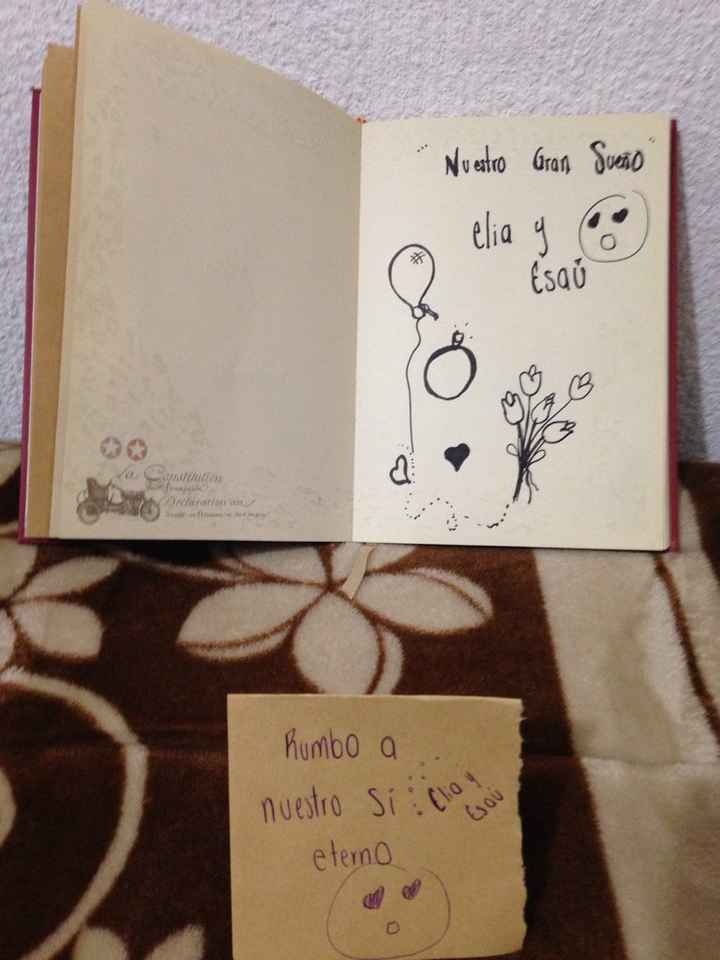 La Constitution
Française
Declaration des
" Nuestro Gran Sueño "
Elia y
Esaú
Rumbo a
nuestro Sí
eterno
Elia y
Esaú